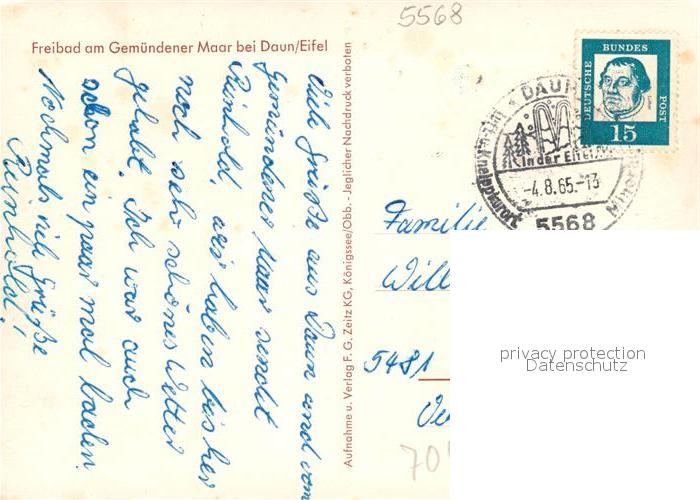 5568
Freibad am Gemündener Maar bei Daun/Eifel
Viele Grüße aus Daun und vom
Gemündener Maar sendet
Reinhold. Wir haben bis her
noch sehr schönes Wetter
gehabt. Ich war auch
schon ein paar mal baden.
Nochmals viele Grüße
Reinhold!
Aufnahme u. Verlag F. G. Zeitz KG, Königssee/Obb. - Jeglicher Nachdruck verboten
DEUTSCHE
BUNDES
POST
15
DAUN
in der Eifel
-4.8.65.-13
5568
Kneippkurort
Familie
Will
5481
privacy protection
Datenschutz